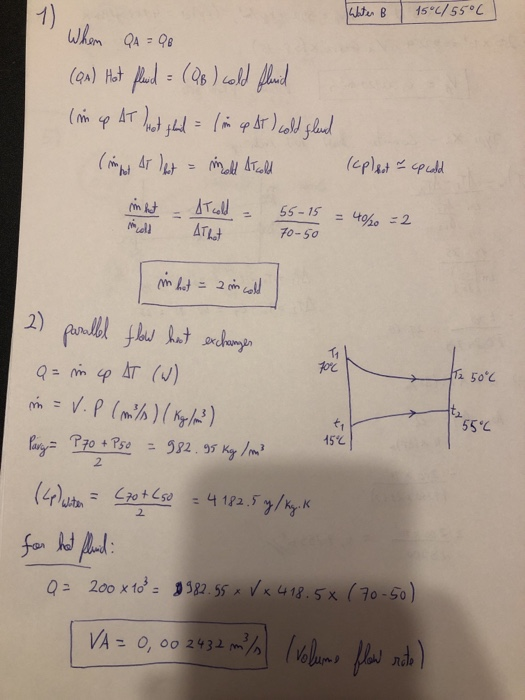 Water B 15°C/55°C
1)
When QA = QB
(QA) Hot fluid = (QB) cold fluid
(ṁ cp ΔT)Hot fluid = (ṁ cp ΔT) cold fluid
(ṁhot ΔT)hot = ṁcold ΔTcold (cp)hot ≃ cp cold
ṁ hot / ṁcold = ΔTcold / ΔThot = 55-15 / 70-50 = 40/20 = 2
ṁ hot = 2 ṁ cold
2) parallel flow heat exchanger
Q = ṁ cp ΔT (W)
ṁ = V.P (m³/s) (Kg/m³)
Pavg = P70 + P50 / 2 = 982.95 Kg/m³
(Cp)water = C70 + C50 / 2 = 4182.5 J/Kg.K
T1 70°C
T2 50°C
t1 15°C
t2 55°C
for hot fluid:
Q = 200 x 10³ = 982.95 x V x 418.5 x (70-50)
VA = 0,002432 m³/s (Volume flow rate)